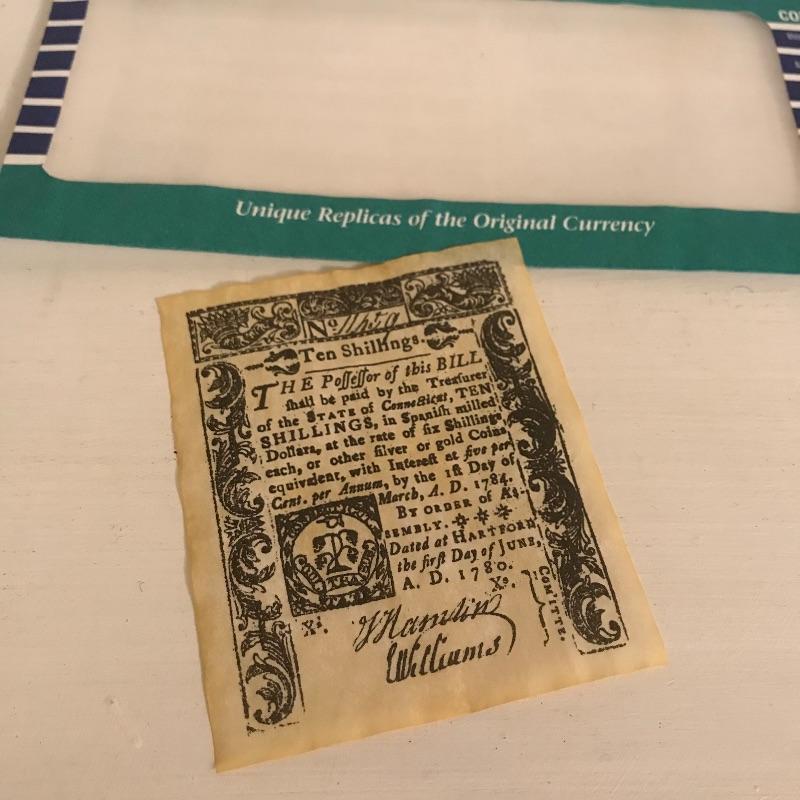 CO
Unique Replicas of the Original Currency
No. 11459
Ten Shillings.
THE Poſſeſſor of this BILL
ſhall be paid by the Treaſurer
of the STATE of Connecticut, TEN
SHILLINGS, in Spaniſh milled
Dollars, at the rate of ſix Shillings
each, or other ſilver or gold Coins
equivalent, with Intereſt at five per
Cent. per Annum, by the 1ſt Day of
March, A. D. 1784.
BY ORDER of Aſ-
SEMBLY.
Dated at HARTFORD
the firſt Day of JUNE,
A. D. 1780.
Xs. Xs.
Williams
COM'ITTE.